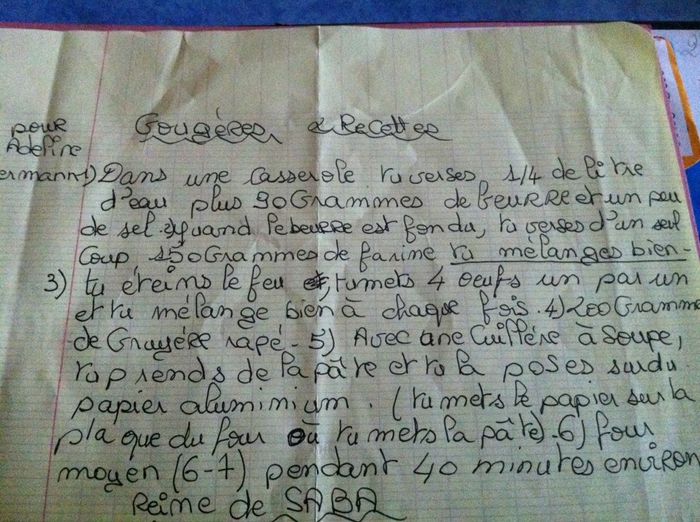 pour
Adeline
ermann
Gougères & Recettes
1) Dans une casserole tu verses 1/4 de litre
d'eau plus 90 Grammes de beurre et un peu
de sel. 2) quand le beurre est fondu, tu verses d'un seul
coup 150 Grammes de farine tu mélanges bien-
3) tu éteins le feu et, tu mets 4 oeufs un par un
et tu mélange bien à chaque fois. 4) 200 Gramme
de Gruyére rapé - 5) Avec une Cuillére à Soupe,
tu prends de la pâte et tu la poses sur du
papier aluminium. (tu mets le papier sur la
plaque du four où tu mets la pâte). 6) four
moyen (6-7) pendant 40 minutes environ
Reine de SABA